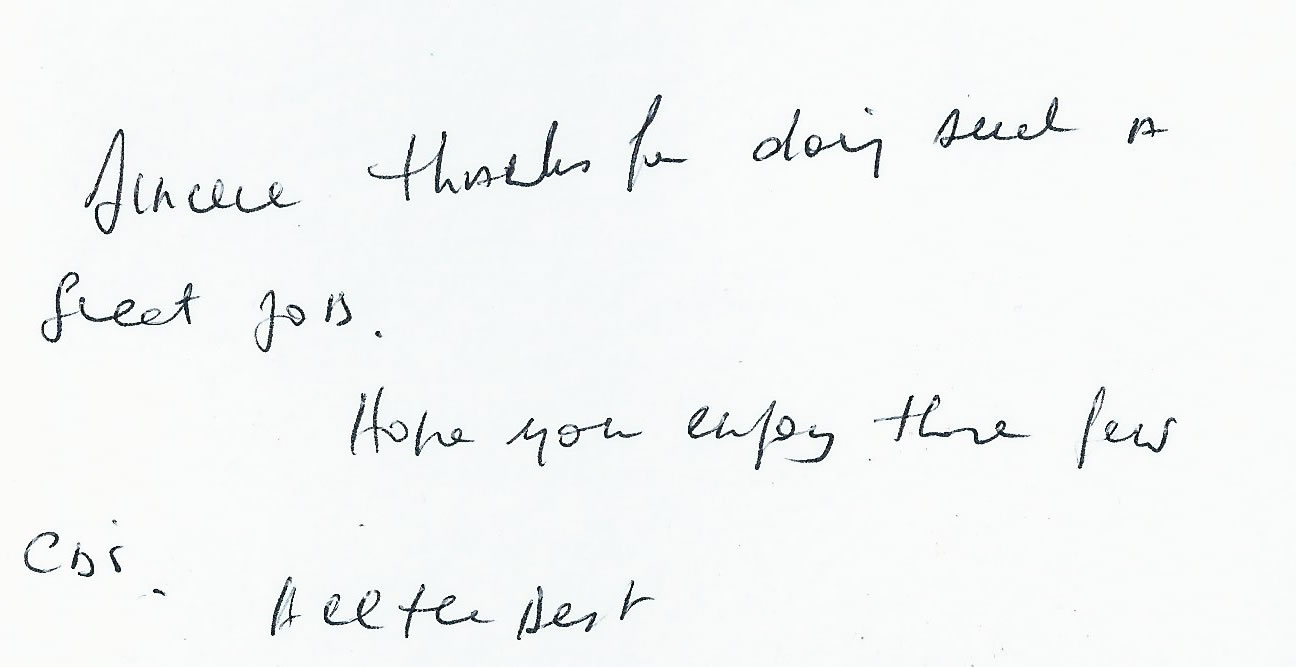 Sincere thanks for doing such a
great job.
Hope you enjoy these few
CDs.
All the Best